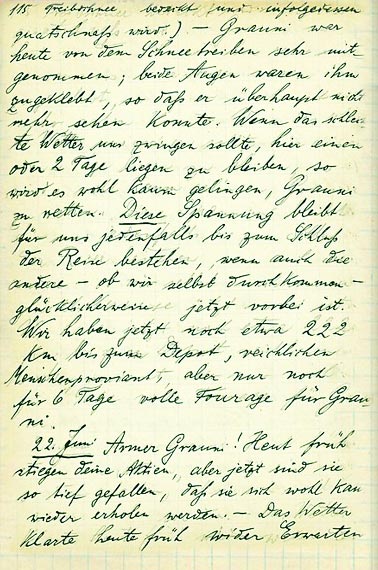 115 Treibschnee bedeckt (und infolgedessen
quatschnaß wird.) – Grauni war
heute von dem Schneetreiben sehr mit
genommen; beide Augen waren ihm
zugeklebt, so daß er überhaupt nicht
mehr sehen konnte. Wenn das schlech
te Wetter uns zwingen sollte, hier einen
oder 2 Tage liegen zu bleiben, so
wird es wohl kaum gelingen, Grauni
zu retten. Diese Spannung bleibt
für uns jedenfalls bis zum Schluß
der Reise bestehen, wenn auch die
andere – ob wir selbst durchkommen –
glücklicherweise jetzt vorbei ist.
Wir haben jetzt noch etwa 222
km bis zum Depot, reichlichen
Menschenproviant, aber nur noch
für 6 Tage volle Fourage für Grau-
ni.
22. Juni Armer Grauni! Heut früh
stiegen deine Aktien, aber jetzt sind sie
so tief gefallen, daß sie sich wohl kaum
wieder erholen werden. – Das Wetter
klarte heute früh wider Erwarten